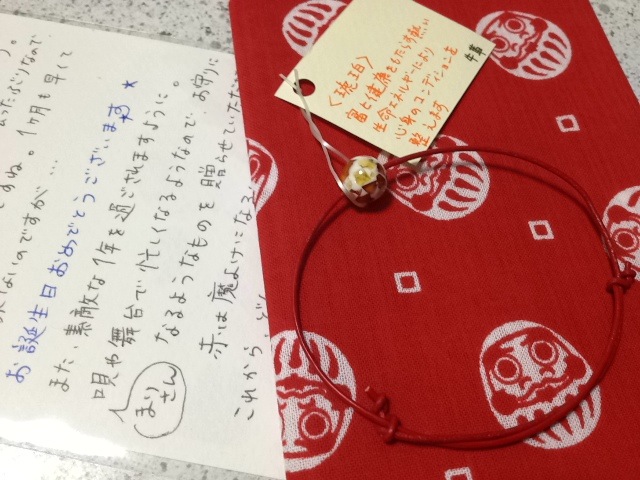 ったぶりなので
ですね。1ヶ月も早くて
ないのですが…
お誕生日おめでとうございます★
また、素敵な1年を過ごされますように。
唄や舞台で忙しくなるようなので、お守りに
なるようなものを贈らせていた
赤は魔よけになる
これから
まりさん
〈琥珀〉
富と健康をもたらす
生命エネルギーにより
心身のコンディションを
整えます